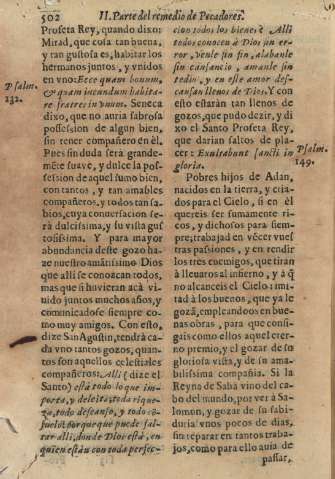 502 II. Parte del remedio de Pecadores.
Profeta Rey, quando dixo:
Mirad, que cosa tan buena,
y tan gustosa es, habitar los
hermanos juntos, y vnidos
en vno: Ecce quam bonum,
& quam iucundum habita-
re fratres in vnum. Seneca
dixo, que no auria sabrosa
possession de algun bien,
sin tener compañero en él.
Pues sin duda serà grande-
mēte suave, y dulce la pos-
session de aquel sumo bien,
con tantos, y tan amables
compañeros, y todos tan sa-
bios, cuya conuersacion se-
rà dulcissima, y su vista gus-
tosissima. Y para mayor
abundancia deste gozo ha-
ze nuestro amātissimo Dios
que alli se conozcan todos,
mas que si huvieran acà vi-
uido juntos muchos años, y
comunicadose siempre co-
mo muy amigos. Con esto,
dize San Agustin, tendrà ca-
da vno tantos gozos, quan-
tos son aquellos celestiales
compañeros: Alli (dize el
Santo) està todo lo que im-
porta, y deleita, toda rique-
za, todo descanso, y todo cō-
suelo: porque què puede fal-
tar alli, donde Dios està, en
quien estàn con toda perfec-
Psalm.
132.
cion todos los bienes? Alli
todos conocen à Dios sin er-
ror, venle sin fin, alabanle
sin cansancio, amanle sin
tedio, y en este amor des-
cansan llenos de Dios. Y con
esto estaràn tan llenos de
gozos, que pudo dezir, y di-
xo el Santo Profeta Rey,
que darian saltos de pla-
cer: Exultabunt sancti in
gloria.
Psalm.
149.
Pobres hijos de Adan,
nacidos en la tierra, y cria-
dos para el Cielo, si en èl
quereis ser sumamente ri-
cos, y dichosos para siem-
pre; trabajad en vēcer vues-
tras passiones, y en rendir
los tres enemigos, que tiran
à lleuaros al infierno, y à q̄
no alcanceis el Cielo: imi-
tad à los buenos, que ya le
gozā, empleandoos en bue-
nas obras, para que consi-
gais como ellos aquel eter-
no premio, y el gozar de su
gloriosa vista, y de su ama-
bilissima compañia. Si la
Reyna de Sabà vino del ca-
bo del mundo, por vèr à Sa-
lomon, y gozar de su sabi-
duria vnos pocos de dias,
sin reparar en tantos traba-
jos, como para ello auia de
passar,